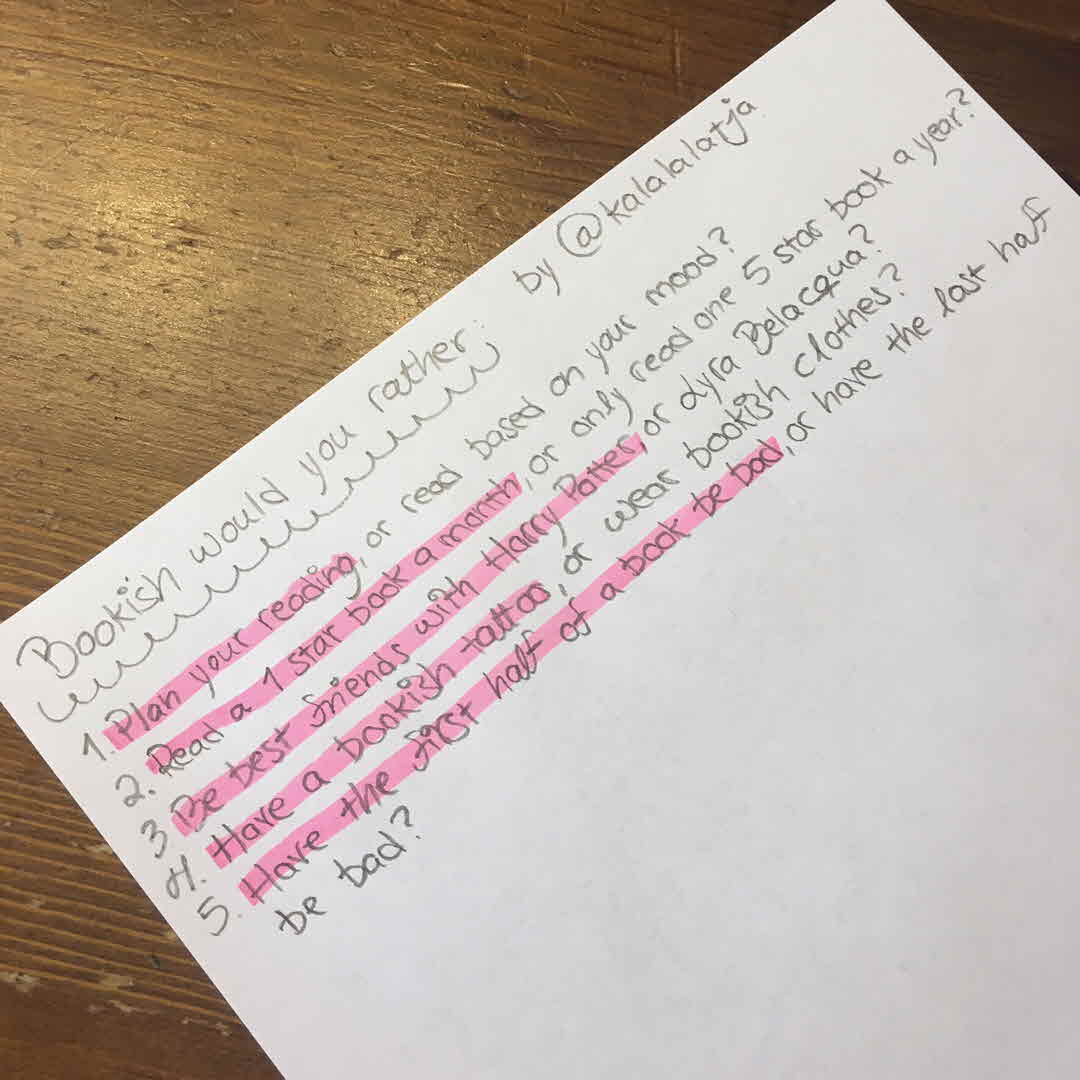 Bookish would you rather:
by @kalalalatja
1. Plan your reading, or read based on your mood?
2. Read a 1 star book a month, or only read one 5 star book a year?
3 Be best friends with Harry Potter, or Lyra Belacqua?
4. Have a bookish tattoo, or wear bookish clothes?
5. Have the first half of a book be bad, or have the last half
be bad?